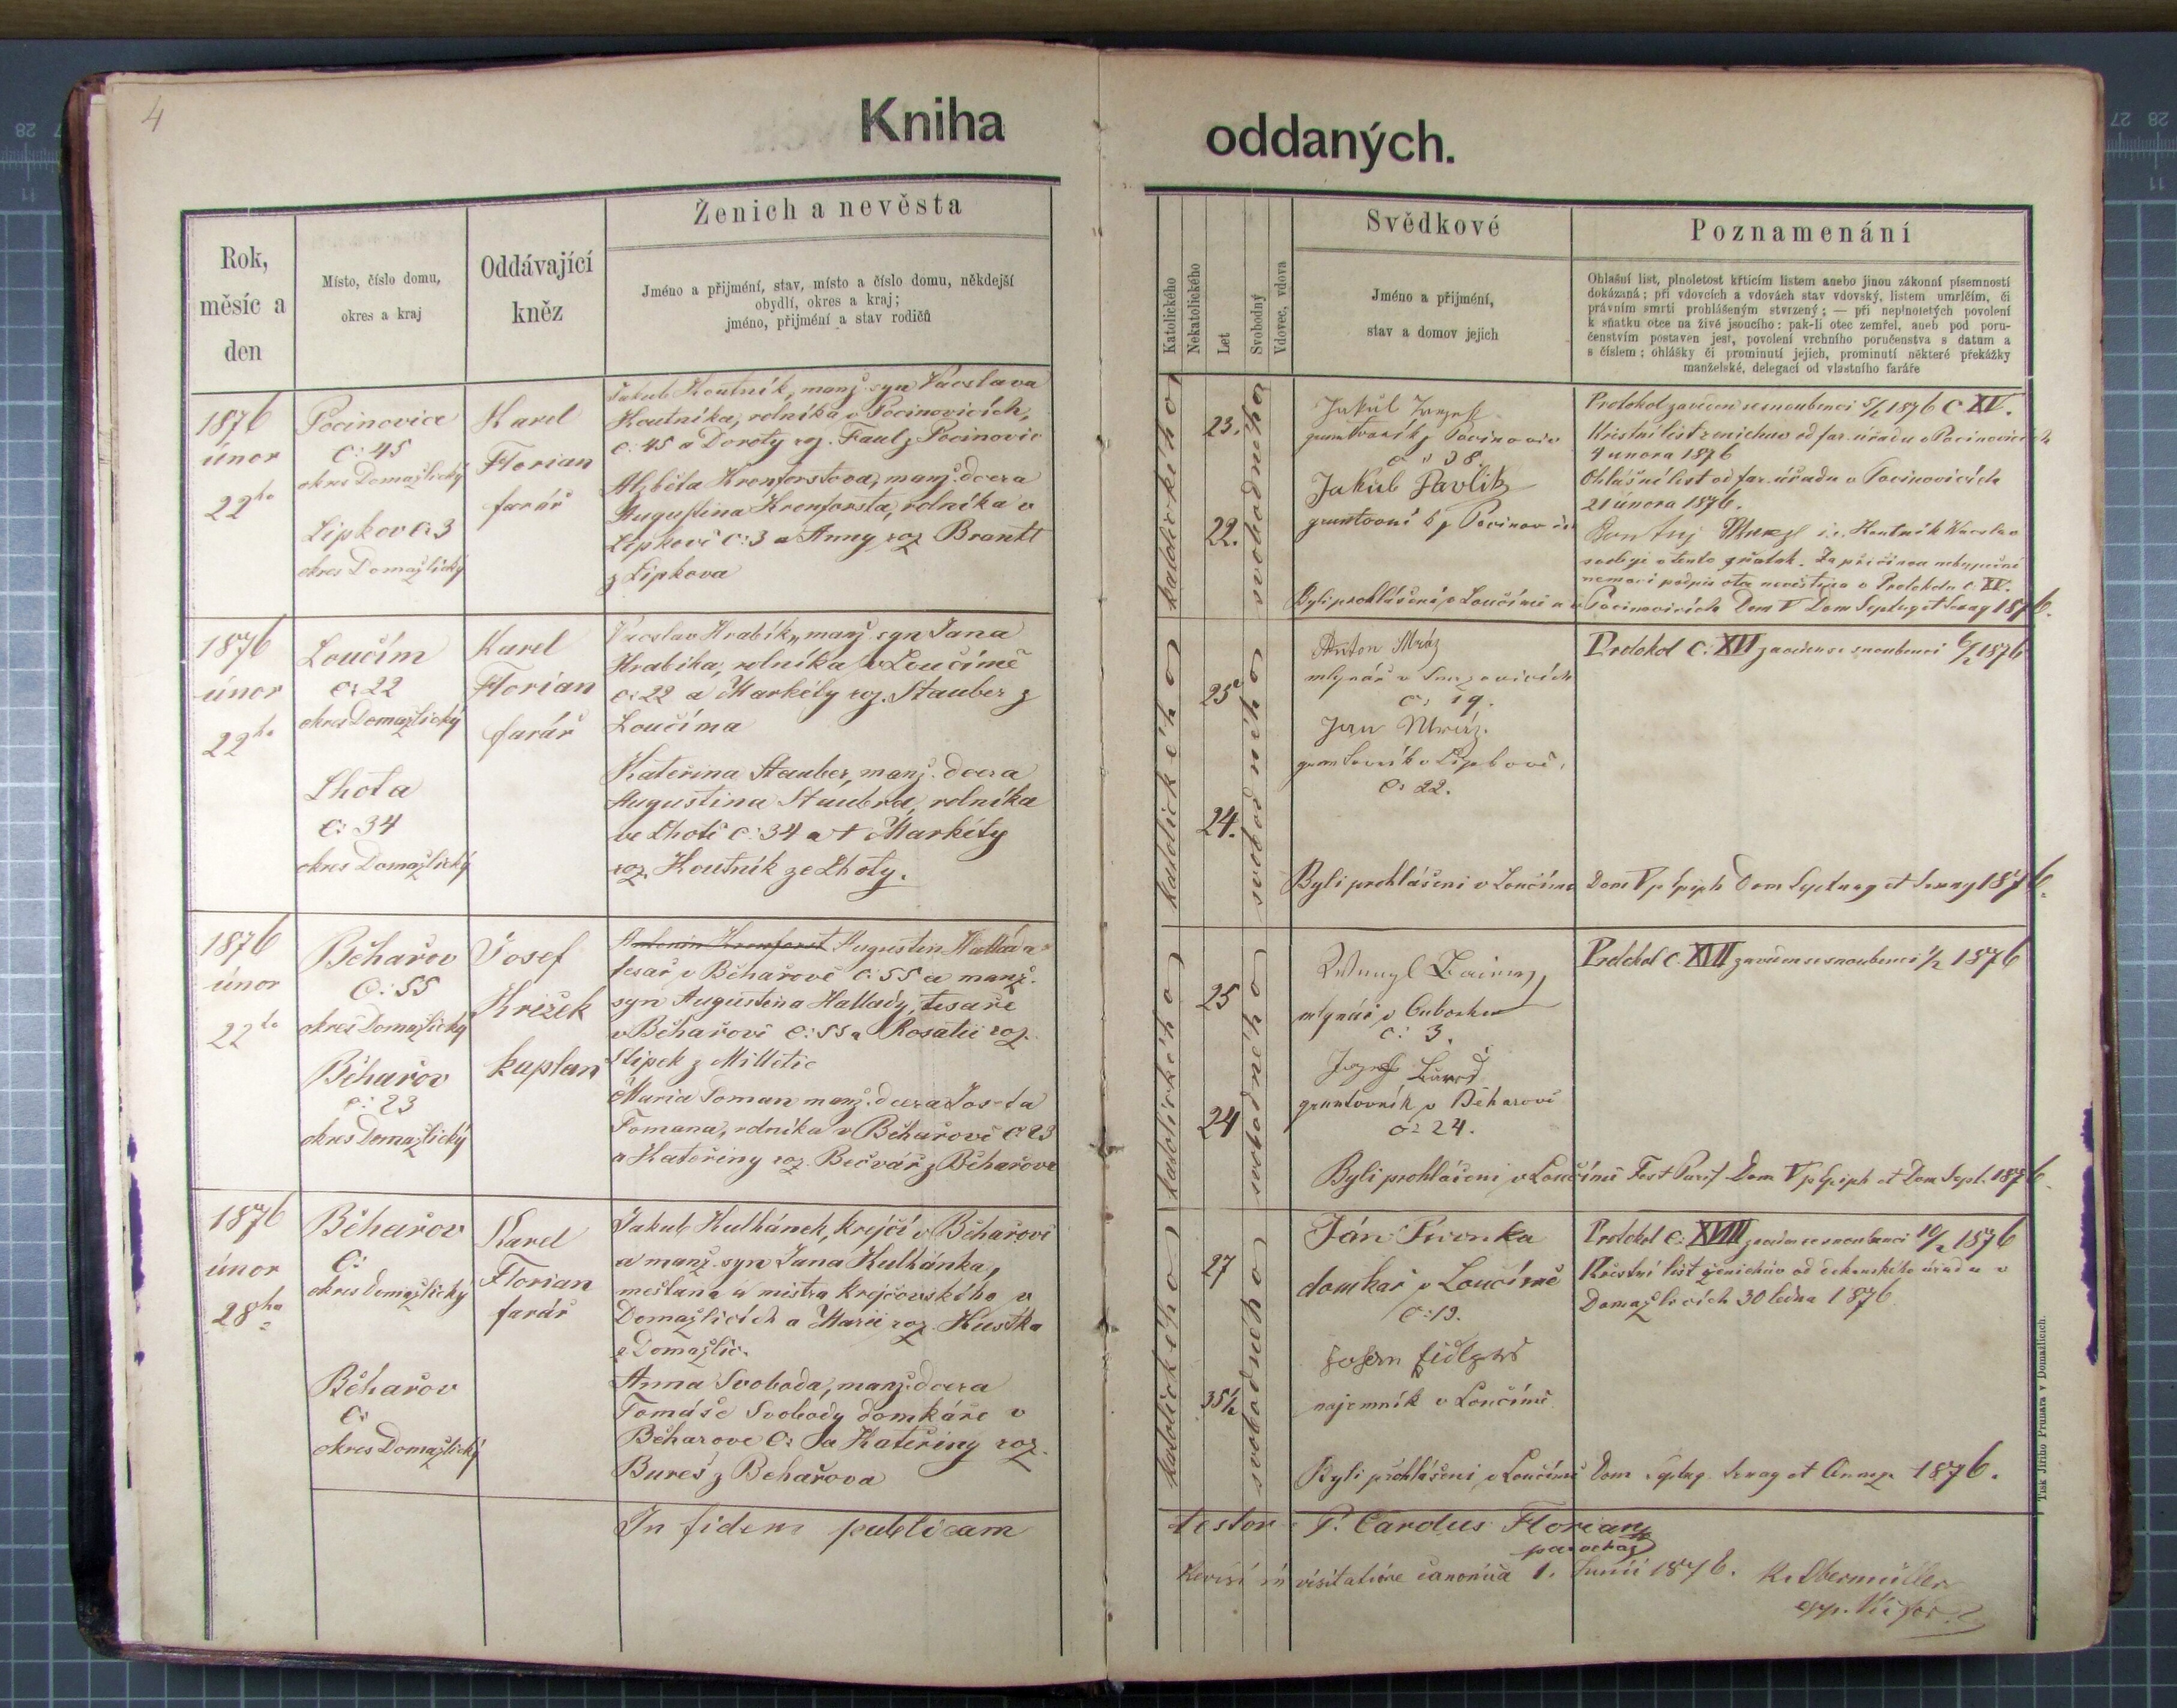 4
Kniha
oddaných.
Rok,
měsíc a
den
Místo, číslo domu,
okres a kraj
Oddávající
kněz
Ženich a nevěsta
Jméno a přijmění, stav, místo a číslo domu, někdejší
obydlí, okres a kraj;
jméno, přijmění a stav rodičů
Katolického
Nekatolického
Let
Svobodný
Vdovec, vdova
Svědkové
Jméno a přijmění,
stav a domov jejich
Poznamenání
Ohlašní list, plnoletost křticím listem anebo jinou zákonní písemností
dokázaná; při vdovcích a vdovách stav vdovský, listem umrlčím, či
právním smrti prohlášeným stvrzený; — při neplnoletých povolení
k sňatku otce na živě jsoucího: pak-li otec zemřel, aneb pod poru-
čenstvím postaven jest, povolení vrchního poručenstva s datum a
s číslem; ohlášky či prominutí jejich, prominutí některé překážky
manželské, delegací od vlastního faráře
1876
únor
22ho
Pocinovice
č: 45
okres Domažlický
Lipkov č: 3
okres Domažlický
Karel
Florian
farář
Jakub Koutník, manž. syn Václava
Koutníka, rolníka v Pocinovicích,
č: 45 a Doroty roz. Faul z Pocinovic
Alzběta Kronforstova, manž. dcera
Augustina Kronforsta, rolníka v
Lipkově č: 3 a Anny roz Brantl
z Lipkova
katolického
23.
22.
svobodného
Jakub
Pocinovic
č " 38.
Jakub Pavlik
Byli prohlášeni v Loučímě a v Pocinovicích Dom V Dom Septuag et Sexag 1876.
Protokol zavěden se snoubenci 5/2 1876 č XV.
Křestní list ženichův od far. úřadu v Pocinovicích
4 unora 1876
Ohlášní list od far. úřadu v Pocinovicích
21 února 1876.
Koutník
podpis otce nevěstina v Protokolu č. XV.
1876
únor
22ho
Loučím
č: 22
okres Domažlický
Lhota
č: 34
okres Domažlický
Karel
Florian
farář
Vácslav Hrabík, manž. syn Jana
Hrabíka, rolníka v Loučímě
č: 22 a Markéty roz. Stauber z
Loučíma
Kateřina Stauber, manž. dcera
Augustina Staubra, rolníka
ve Lhotě č: 34 a + Markéty
roz. Koutník ze Lhoty.
katolického
25
24.
svobodného
Anton Mráz
mlynář v
č: 19.
Jan Mráz.
gruntovník v Lipkově,
č: 22.
Byli prohlášeni v Loučímě Dom V p Epiph Dom Septuag et Sexag 1876.
Protokol č: XVI zavěden se snoubenci 6/2 1876
1876
únor
22ho
Běhařov
č: 55
okres Domažlický
Běhařov
č: 23
okres Domažlický
Josef
Křížek
kaplan
Antonin Kronforst Augustin Hallada
tesař v Běhařově č: 55 a manž.
syn Augustina Hallady, tesaře
v Běhařově č: 55 a Rosalie roz.
Slipek z Milletic
Maria Toman manž. dcera Josefa
Tomana, rolníka v Běhařově č: 23
a Kateřiny roz. Bečvář z Běhařova
katolického
25
24
svobodného
mlynář v
č: 3.
Josef Bureš
gruntovník v Běhařově
č: 24.
Byli prohlášeni v Loučímě Fest Purif Dom V p Epiph et Dom Sept. 1876.
Protokol č. XVII zavěden se snoubenci 1/2 1876
1876
únor
28ho
Běhařov
č:
okres Domažlický
Běhařov
č:
okres Domažlický
Karel
Florian
farář
Jakub Kulhánek, krejčí v Běhařově
a manž. syn Jana Kulhánka,
měšťana a mistra krejčovského v
Domažlicích a Marie roz. Kustka
z Domažlic.
Anna Svoboda, manž. dcera
Tomáše Svobody domkáře v
Běhařově č: a Kateřiny roz.
Bureš z Běhařova
katolického
27
35 1/2
svobodného
Ján Pivonka
domkář v Loučímě
č: 19.
najemník v Loučímě
Byli prohlášeni v Loučímě Dom Septuag. Sexag et Quinqu 1876.
Protokol č: XVIII zavěden se snoubenci 10/2 1876
Křestní list ženichův od děkanského úřadu v
Domažlicích 30 ledna 1876.
In fidem publicam
testor P. Carolus Florian
parochus
Revisi in visitatione canonica 1. Junii 1876. K. Obermüller
Tisk Jiřího Prunara v Domažlicích.